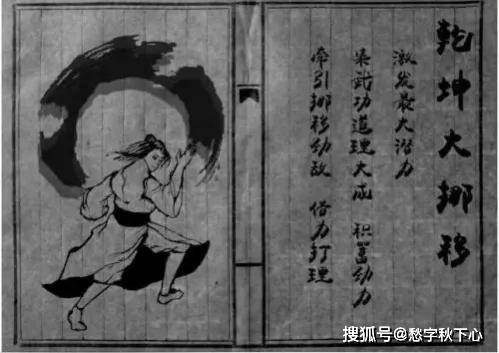 乾坤大挪移
激发最大潜力
集武功道理大成 积蓄劲力
牵引挪移劲敌 借力打理
搜狐号@愁字秋下心